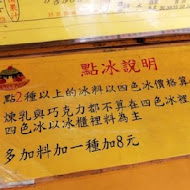 點冰說明
點2種以上的冰料以四色冰價格算
煉乳與巧克力都不算在四色冰裡
四色冰以冰櫃裡料為主
多加料加一種加8元